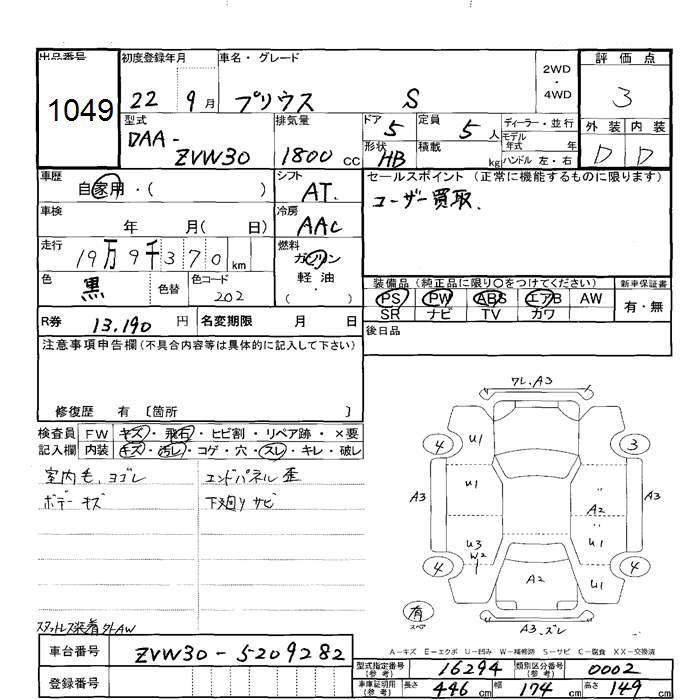 出品番号 初度登録年月 車名・グレード 2WD・4WD 評価点
1049 22 9月 プリウス S 3
型式 排気量 ドア 定員 ディーラー・並行 外装 内装
DAA-ZVW30 1800cc 5 5人 モデル年式 年 D D
形状 HB 積載 kg ハンドル 左・右
車歴 自家用・( ) シフト AT. セールスポイント (正常に機能するものに限ります)
ユーザー買取.
車検 年 月( 日) 冷房 AAC
走行 19万9千370km 燃料 ガソリン
軽油
( )
色 黒 色替 色コード 202
装備品(純正品に限り○をつけてください) 新車保証書
PS PW ABS エアB AW 有・無
SR ナビ TV カワ
R券 13.190円 名変期限 月 日 後日品
注意事項申告欄(不具合内容等は具体的に記入して下さい)
修復歴 有 〔箇所 〕
検査員 FW キズ・飛石・ヒビ割・リペア跡・×要
記入欄 内装 キズ・汚レ・コゲ・穴・スレ・キレ・破レ
室内毛、ヨゴレ エンドパネル歪
ボデーキズ 下廻りサビ
スタットレス装着 外AW
ワレ、A3
4 U1 3
A3 U1 A3
A2
U3 W2 U1
4 A2 U1 4
有 スペア
A3、ズレ
A-キズ E-エクボ U-凹み W-補修跡 S-サビ C-腐食 XX-交換済
車台番号 ZVW30-5209282
型式指定番号(参考) 16294 類別区分番号(参考) 0002
登録番号
車庫証明用(参考) 長さ 446cm 幅 174cm 高さ 149cm